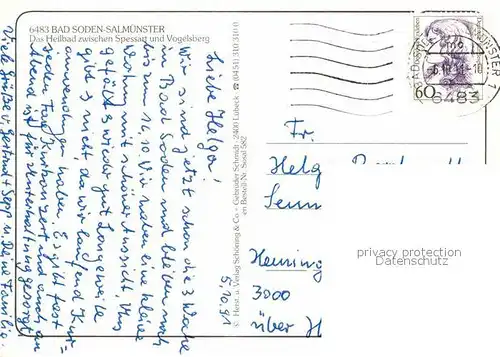 6483 BAD SODEN-SALMÜNSTER
Das Heilbad zwischen Spessart und Vogelsberg
Liebe Helga!
Wir sind jetzt schon die 3. Woche
in Bad Soden und bleiben noch
bis zum 16.10. Wir haben eine kleine
Wohnung mit schöner Aussicht. Uns
gefällt es wieder gut. Langeweile
gibt es nicht, da wir laufend Kur-
anwendungen haben. Es gibt fast
jeden Tag Kurkonzert und auch am
Abend ist für Unterhaltung gesorgt.
Viele Grüße v. Gertrud + Sepp u. Familie.
5.10.91
© Herst. u. Verlag Schöning & Co · Gebrüder Schmidt, 2400 Lübeck · ☎ (0451) 310 310
Bestell-Nr. 582
60
10.91.-10
6483
Fr.
Helg
3000
über H
privacy protection
Datenschutz